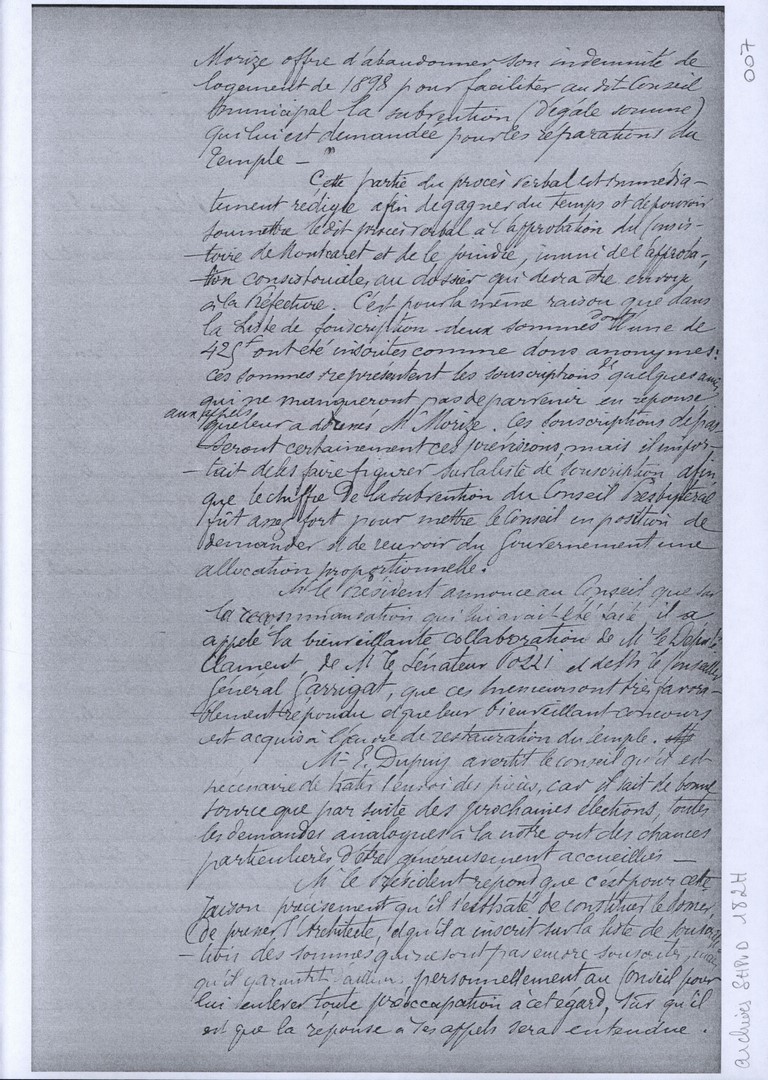 007
Morize offre d'abandonner son indemnité de
logement de 1898 pour faciliter au dit Conseil
Municipal la subvention (d'égale somme)
qui lui est demandée pour les réparations du
Temple —
Cette partie du procès verbal est immédia-
tement rédigée afin de gagner du temps et de pouvoir
soumettre ledit procès verbal à l'approbation du Consis-
-toire de Montcaret et de le joindre, muni de l'approba-
-tion consistoriale, au dossier qui devra être envoyé
à la Préfecture. C'est pour la même raison que dans
la Liste de Souscription deux sommes dont l'une de
425f ont été inscrites comme dons anonymes:
ces sommes représentent les souscriptions de quelques amis
qui ne manqueront pas de parvenir en réponse
aux appels que leur a adressés Mr Morize. Ces souscriptions dépas-
-seront certainement ces prévisions, mais il impor-
-tait de les faire figurer sur la liste de souscription afin
que le chiffre de la subvention du Conseil Presbytéral
fût assez fort pour mettre le Conseil en position de
demander et de recevoir du Gouvernement une
allocation proportionnelle.
Mr le Président annonce au Conseil que sur
la recommandation qui lui avait été faite, il a
appelé la bienveillante collaboration de Mr le Député
Clament, de Mr le Sénateur Pozzi et de Mr le Conseiller
Général Garrigat, que ces messieurs ont très favora-
-blement répondu et que leur bienveillant concours
est acquis à l'œuvre de restauration du temple.
Mr E. Dupuy avertit le conseil qu'il est
nécessaire de hâter l'envoi des pièces, car il sait de bonne
source que par suite des prochaines élections, toutes
les demandes analogues à la nôtre ont des chances
particulières d'être généreusement accueillies —
Mr le Président répond que c'est pour cette
raison précisément qu'il s'est hâté de constituer le dossier,
de presser l'Architecte, et qu'il a inscrit sur la liste de souscrip-
-tion des sommes qui ne sont pas encore souscrites, mais
qu'il garantit personnellement au Conseil pour
lui enlever toute préoccupation à cet égard, sûr qu'il
est que la réponse à ses appels sera entendue.
Archives SHPVD 182H